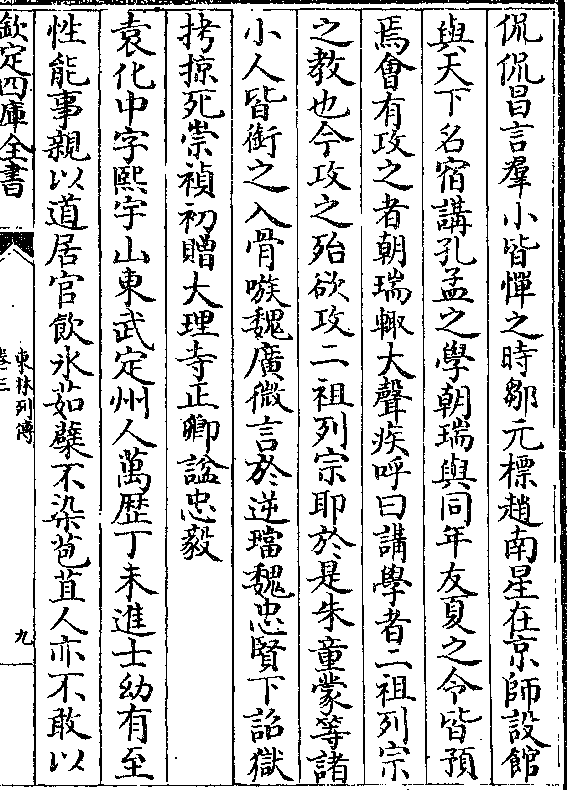 侃侃昌言羣小皆憚之時鄒元標趙南星在京師設館
與天下名宿講孔孟之學朝瑞與同年友夏之令皆預
焉會有攻之者朝瑞輙大聲疾呼曰講學者二祖列宗
之教也今攻之殆欲攻二祖列宗耶於是朱童蒙等諸
小人皆銜之入骨嗾魏廣微言於逆璫魏忠賢下詔獄
拷掠死崇禎初贈大理寺正卿諡忠毅
袁化中字熙宇山東武定州人萬歴丁未進士幼有至
性能事親以道居官飲氷茹檗不染苞苴人亦不敢以
欽定四庫全書
東林列傳
卷三
九